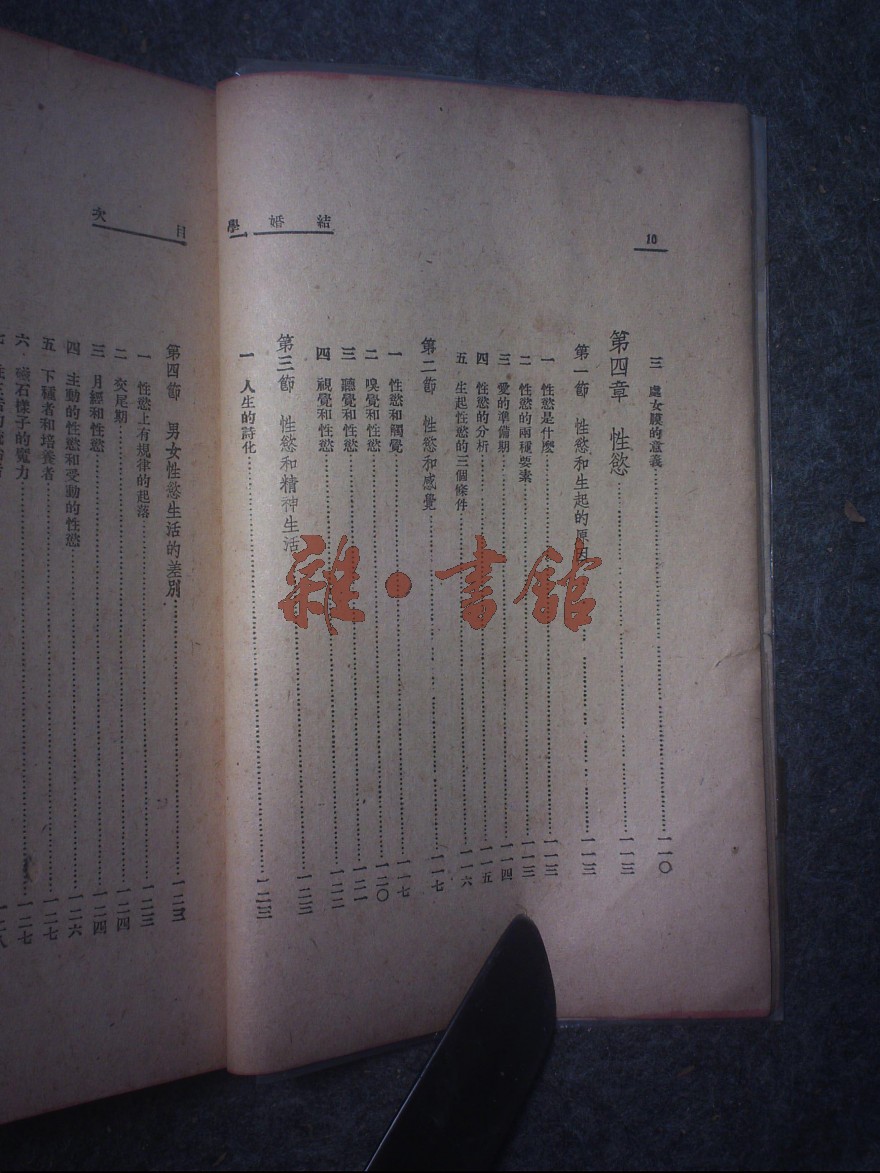 10
結婚學
三　處女膜的意義……一一〇
第四章　性慾……一一三
第一節　性慾和生起的原因……一一三
一　性慾是什麼……一一三
二　性慾的兩種要素……一一三
三　愛的準備期……一一四
四　性慾的分析……一一五
五　生起性慾的三個條件……一一六
第二節　性慾和感覺……一一七
一　性慾和觸覺……一一七
二　嗅覺和性慾……一二〇
三　聽覺和性慾……一二一
四　視覺和性慾……一二二
第三節　性慾和精神生活……一二三
一　人生的詩化……一二三
目次
第四節　男女性慾生活的差別……一二三
一　性慾上有規律的起落……一二三
二　交尾期……一二四
三　月經和性慾……一二四
四　主動的性慾和受動的性慾……一二六
五　下種者和培養者……一二七
六　磁石樣子的魔力……一二七
雜·書館